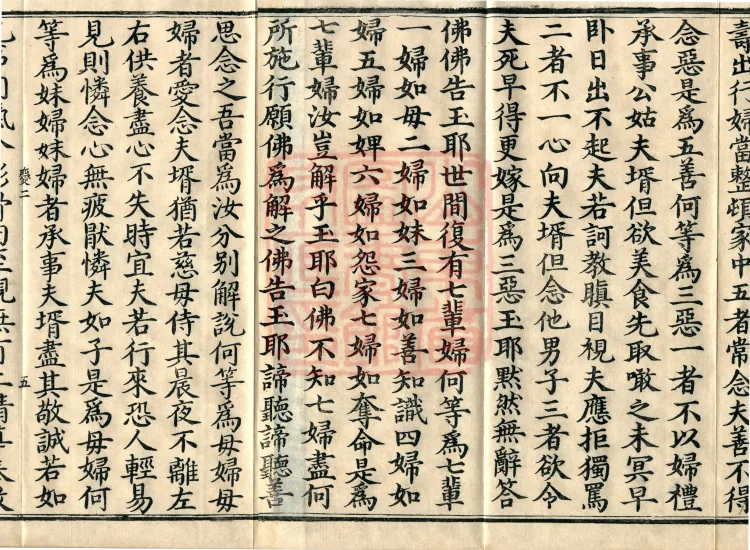 壽出行婦當整頓家中五者常念夫善不得
念惡是爲五善何等爲三惡一者不以婦禮
承事公姑夫壻但欲美食先取噉之未冥早
卧日出不起夫若訶教瞋目視夫應拒獨罵
二者不一心向夫壻但念他男子三者欲令
夫死早得更嫁是爲三惡玉耶黙然無辭答
佛佛告玉耶世間復有七輩婦何等爲七輩
一婦如母二婦如妹三婦如善知識四婦如
婦五婦如婢六婦如怨家七婦如奪命是爲
七輩婦汝豈解乎玉耶白佛不知七婦盡何
所施行願佛爲解之佛告玉耶諦聽諦聽善
思念之吾當爲汝分别解說何等爲母婦母
婦者愛念夫壻猶若慈母侍其晨夜不離左
右供養盡心不失時宜夫若行來恐人輕易
見則憐念心無疲猒憐夫如子是爲母婦何
等爲妹婦妹婦者承事夫壻盡其敬誠若如
二 五